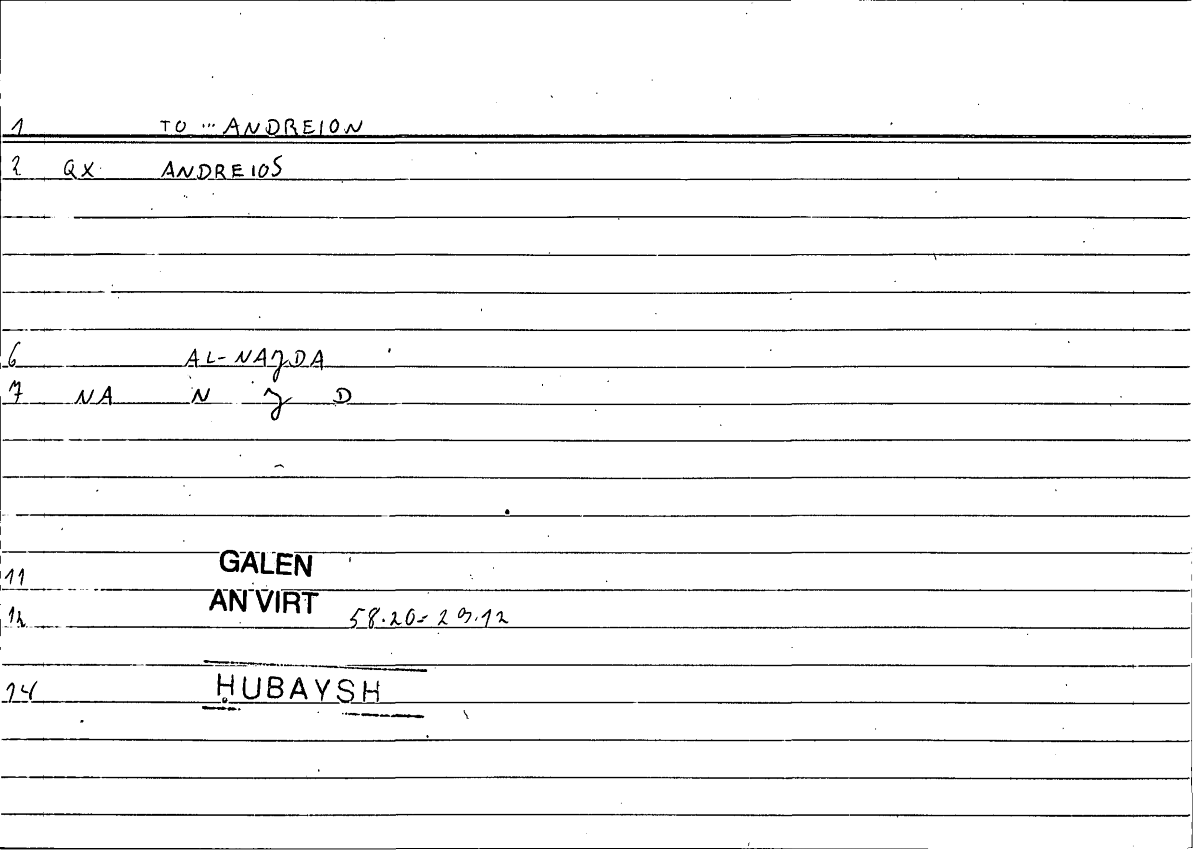 1 TO ... ANDREION
2 QX ANDREIOS
6 AL-NAJDA
7 NA N J D
11 GALEN
12 AN VIRT 58.20-29.12
14 HUBAYSH